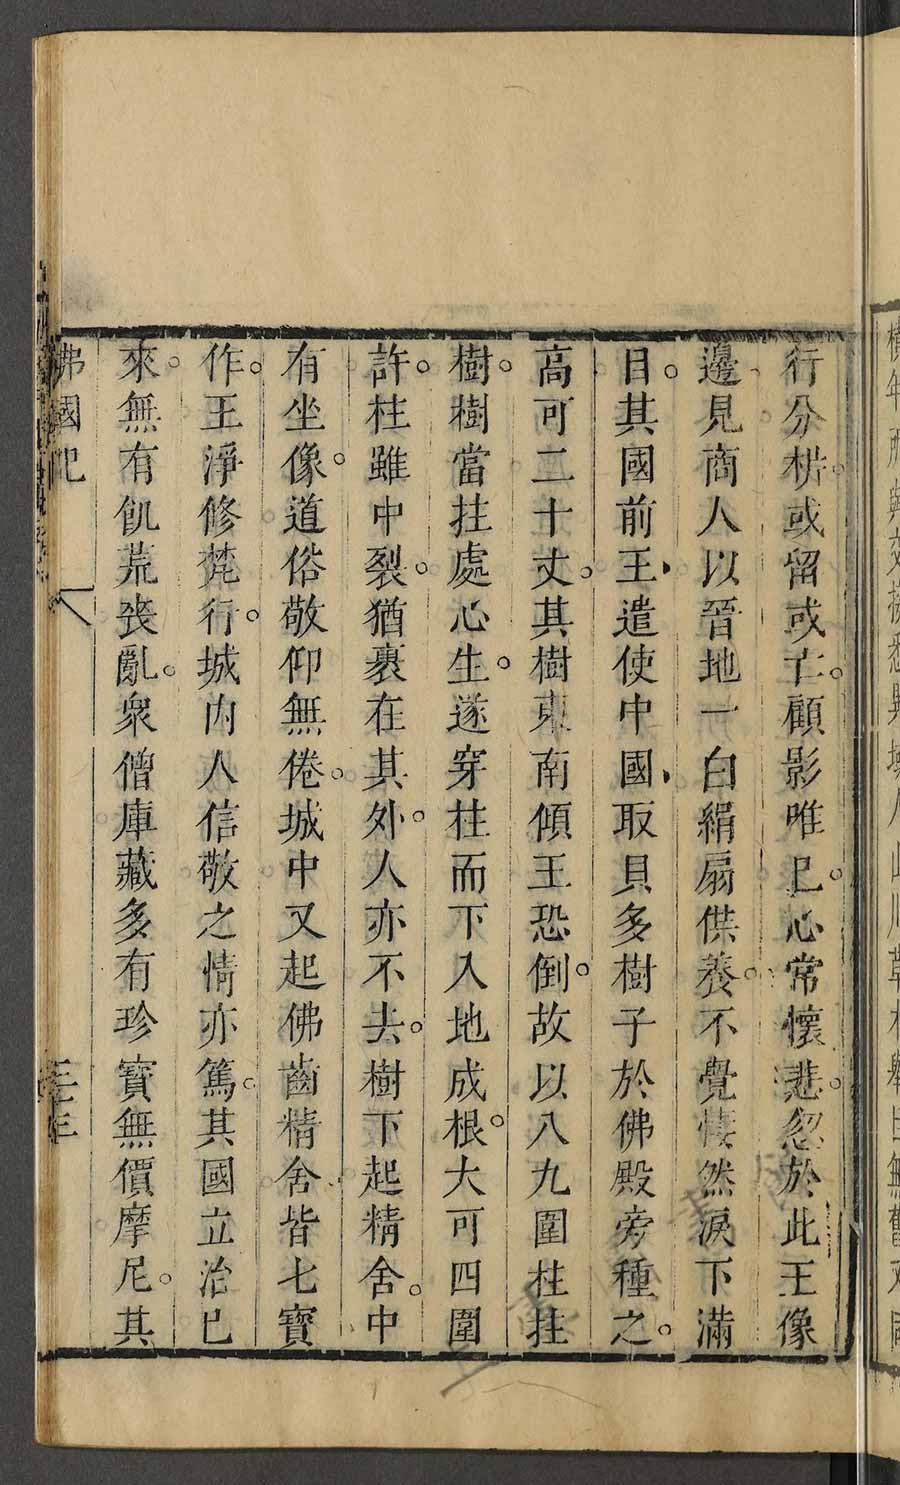 行分析。或留或亡。顧影唯己。心常懷悲。忽於此玉像
邊見商人以晉地一白絹扇供養。不覺悽然淚下滿
目。其國前王遣使中國取貝多樹子於佛殿旁種之。
高可二十丈。其樹東南傾王恐倒。故以八九圍柱拄
樹。樹當拄處心生。遂穿柱而下入地成根。大可四圍
許。柱雖中裂。猶裹在其外。人亦不去。樹下起精舍。中
有坐像。道俗敬仰無倦。城中又起佛齒精舍皆七寶
作。王淨修梵行。城內人信敬之情亦篤。其國立治已
來。無有飢荒喪亂。衆僧庫藏多有珍寶無價摩尼。其
佛國記